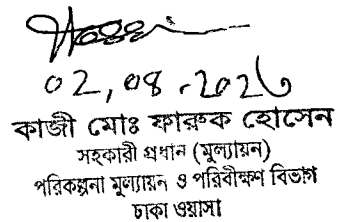 ০২,০৪.২০২৬
কাজী মোঃ ফারুক হোসেন
সহকারী প্রধান (মুল্যায়ন)
পরিকল্পনা মুল্যায়ন ও পরিবীক্ষণ বিভাগ
ঢাকা ওয়াসা